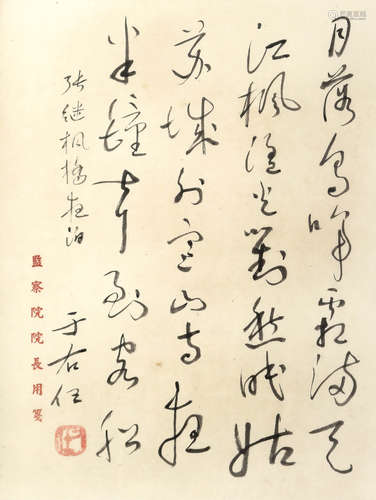 月落烏啼霜滿天
江楓漁火對愁眠姑
蘇城外寒山寺夜
半鐘聲到客船
張繼楓橋夜泊
于右任
監察院院長用箋